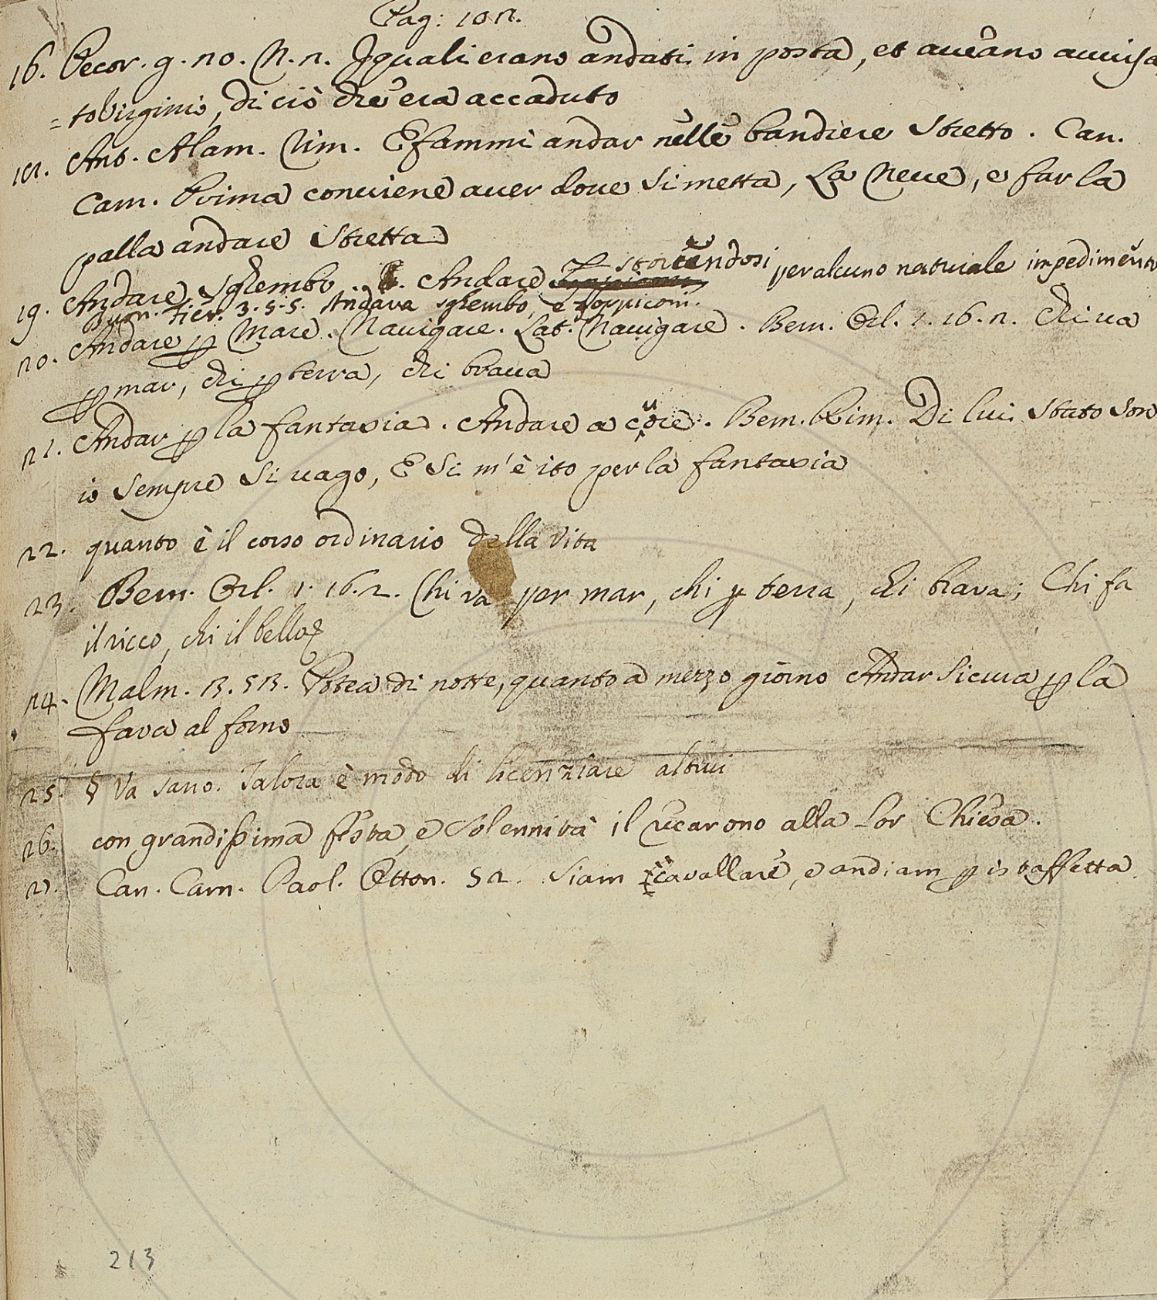 Pag: 102.
16. Pecor. g. 20. N. 2. I quali erano andati in posta, et aveano avvisa
= to Virginio, di ciò che era accaduto
Ant. Alam. Rim. E fammi andar nelle bandiere Stretto. Can.
Carn. Prima conviene aver dove si metta, La Neve, e far la
palla andare Stretta
19. Andare sghembo. Andare storcendosi per alcuno naturale impedimento
Buon. Fier. 3. 5. 5. Andava sghembo, e zoppiconi.
20. Andare p Mare. Navigare. Lat. Navigare. Bern. Orl. 1. 16. 2. Chi va
p mar, chi p terra, chi brava
21. Andar p la fantasia. Andare a cuore. Bern. Rim. Di lui Stato Son
io Sempre Si vago, E Si m'è ito per la fantasia
22. quanto è il corso ordinario della Vita
23. Bern. Orl. 1. 16. 2. Chi va per mar, chi p terra, chi brava; Chi fa
il ricco, chi il bello
24. Malm. Potea di notte, quanto a mezzo giorno Andar Sicura p la
fava al forno
25. § Va sano. Talora è modo di licenziare altrui
26. con grandissima festa, e Solennità il recarono alla Lor Chiesa.
27. Can. Carn. Paol. Otton. 52. Siam cavallare, e andiam p istaffetta.
213